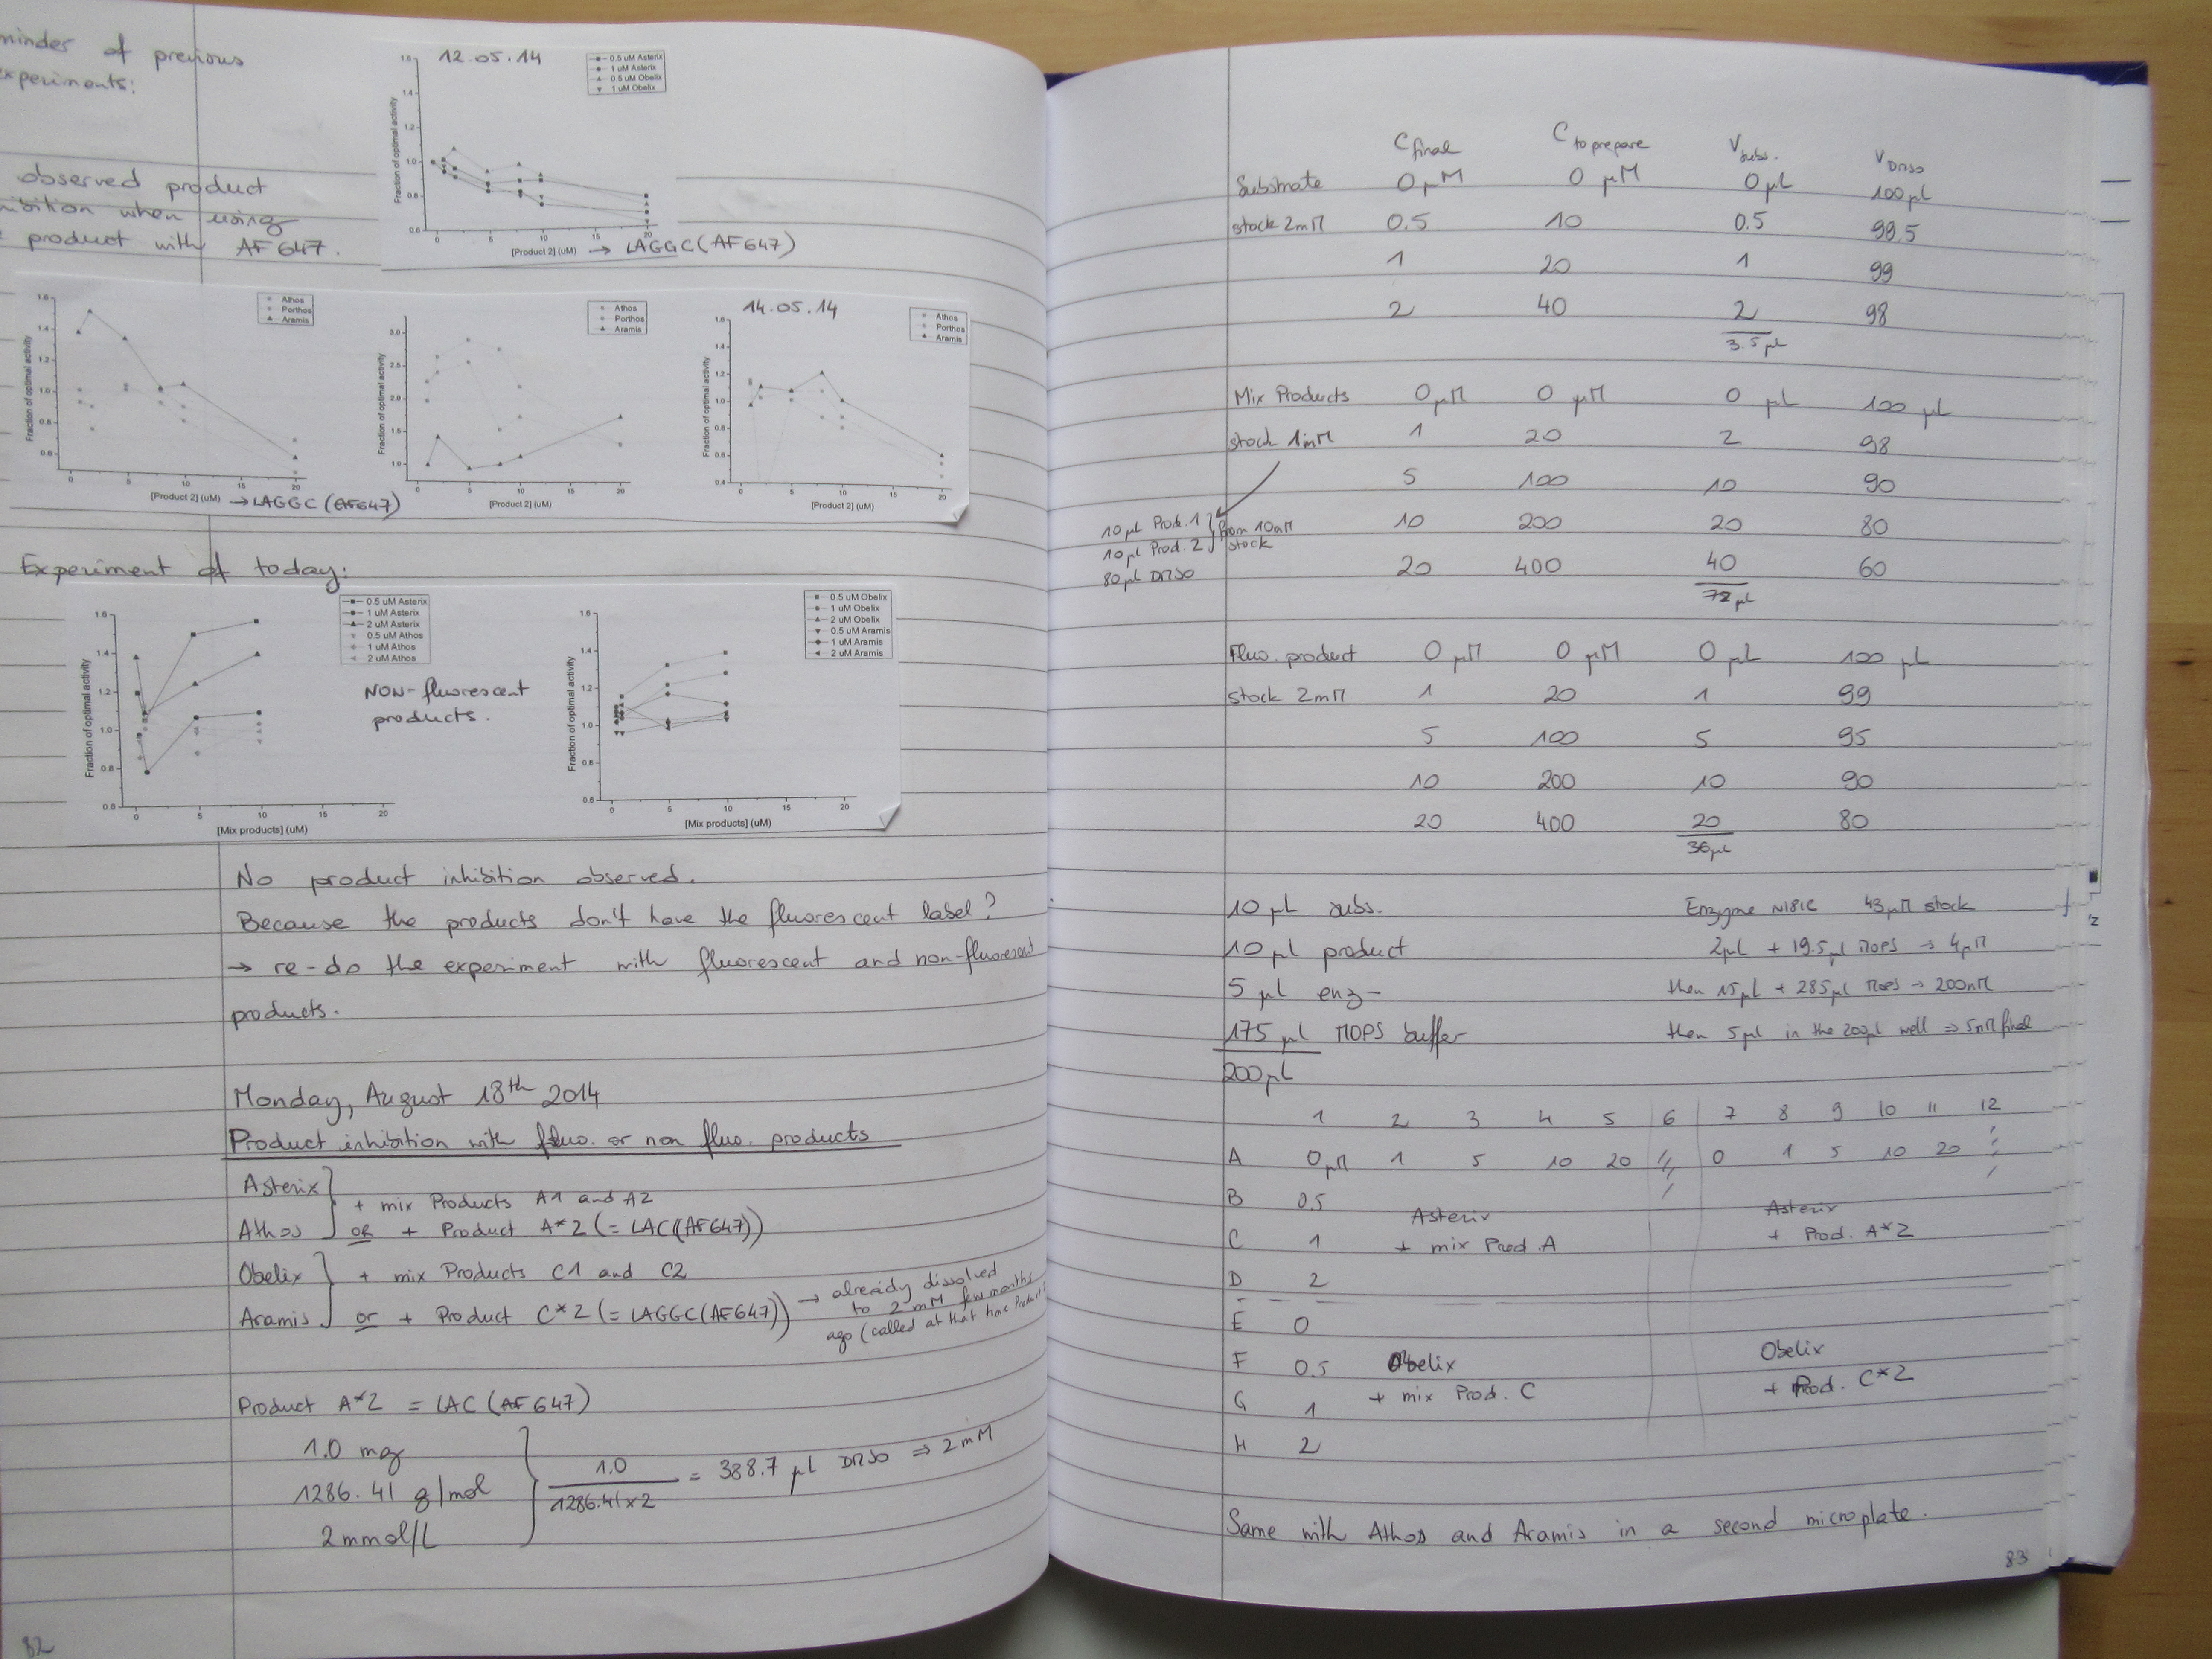 minder of previous
experiments:
observed product
ibition when using
product with AF647.
12.05.14
0.5 uM Asterix
1 uM Asterix
0.5 uM Obelix
1 uM Obelix
Fraction of optimal activity
1.6
1.4
1.2
1.0
0.8
0.6
0 5 10 15 20
[Product 2] (uM) → LAGGC(AF647)
Athos
Porthos
Aramis
Fraction of optimal activity
1.6
1.4
1.2
1.0
0.8
0.6
0 5 10 15 20
[Product 2] (uM) → LAGGC (AF647)
Athos
Porthos
Aramis
Fraction of optimal activity
3.0
2.5
2.0
1.5
1.0
0 5 10 15 20
[Product 2] (uM)
14.05.14
Athos
Porthos
Aramis
Fraction of optimal activity
1.6
1.4
1.2
1.0
0.8
0.6
0.4
0 5 10 15 20
[Product 2] (uM)
Experiment of today:
0.5 uM Asterix
1 uM Asterix
2 uM Asterix
0.5 uM Athos
1 uM Athos
2 uM Athos
Fraction of optimal activity
1.6
1.4
1.2
1.0
0.8
0.6
0 5 10 15 20
[Mix products] (uM)
NON-fluorescent
products.
0.5 uM Obelix
1 uM Obelix
2 uM Obelix
0.5 uM Aramis
1 uM Aramis
2 uM Aramis
Fraction of optimal activity
1.6
1.4
1.2
1.0
0.8
0.6
0 5 10 15 20
[Mix products] (uM)
No product inhibition observed.
Because the products don't have the fluorescent label?
→ re-do the experiment with fluorescent and non-fluorescent
products.
Monday, August 18th 2014
Product inhibition with fluo. or non fluo. products
Asterix
Athos
+ mix Products A1 and A2
or + Product A*2 (= LAC(AF647))
Obelix
Aramis
+ mix Products C1 and C2
or + Product C*2 (= LAGGC(AF647))
→ already dissolved
to 2 mM few months
ago (called at that time Product
Product A*2 = LAC (AF647)
1.0 mg
1286.41 g/mol
2 mmol/L
1.0
1286.41 x 2
= 388.7 µl DMSO ⇒ 2 mM
82
C final C to prepare V subs. V DMSO
Substrate 0 µM 0 µM 0 µL 100 µL
stock 2mM 0.5 10 0.5 99.5
1 20 1 99
2 40 2 98
3.5 µL
Mix Products 0 µM 0 µM 0 µL 100 µL
stock 1mM 1 20 2 98
5 100 10 90
10 µl Prod. 1
10 µl Prod. 2
from 10mM
stock
80 µl DMSO
10 200 20 80
20 400 40 60
72 µL
Fluo. product 0 µM 0 µM 0 µL 100 µL
stock 2mM 1 20 1 99
5 100 5 95
10 200 10 90
20 400 20 80
36 µL
10 µL subs.
10 µL product
5 µl enz-
175 µl MOPS buffer
200 µL
Enzyme NIBIC 43 µM stock
2µL + 19.5 µl MOPS → 4µM
then 15µL + 285µL MOPS → 200nM
then 5µl in the 200µl well ⇒ 5nM final
1 2 3 4 5 6 7 8 9 10 11 12
A 0µM 1 5 10 20 0 1 5 10 20
B 0.5
C 1
D 2
Asterix
+ mix Prod. A
Asterix
+ Prod. A*2
E 0
F 0.5
G 1
H 2
Obelix
+ mix Prod. C
Obelix
+ Prod. C*2
Same with Athos and Aramis in a second microplate.
83